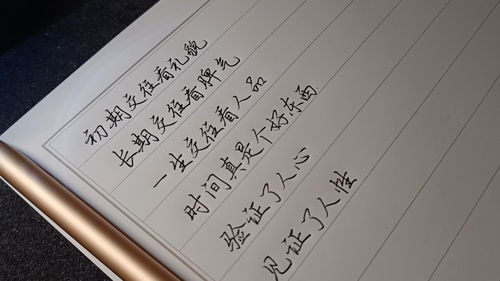 初期交往看礼貌
长期交往看脾气
一生交往看人品
时间真是个好东西
验证了人心
见证了人性